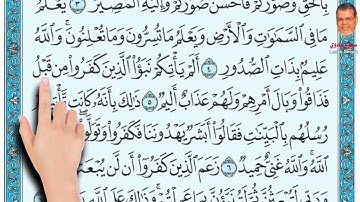 بِٱلْحَقِّ وَصَوَّرَكُمْ فَأَحْسَنَ صُوَرَكُمْ وَإِلَيْهِ ٱلْمَصِيرُ ٣ يَعْلَمُ
مَا فِي ٱلسَّمَٰوَٰتِ وَٱلْأَرْضِ وَيَعْلَمُ مَا تُسِرُّونَ وَمَا تُعْلِنُونَ وَٱللَّهُ
عَلِيمٌۢ بِذَاتِ ٱلصُّدُورِ ٤ أَلَمْ يَأْتِكُمْ نَبَؤُا۟ ٱلَّذِينَ كَفَرُوا۟ مِن قَبْلُ
فَذَاقُوا۟ وَبَالَ أَمْرِهِمْ وَلَهُمْ عَذَابٌ أَلِيمٌ ٥ ذَٰلِكَ بِأَنَّهُۥ كَانَت تَّأْتِيهِمْ
رُسُلُهُم بِٱلْبَيِّنَٰتِ فَقَالُوٓا۟ أَبَشَرٌ يَهْدُونَنَا فَكَفَرُوا۟ وَتَوَلَّوا۟
ٱللَّهُ وَٱللَّهُ غَنِيٌّ حَمِيدٌ ٦ زَعَمَ ٱلَّذِينَ كَفَرُوٓا۟ أَن لَّن يُبْعَثُوا۟